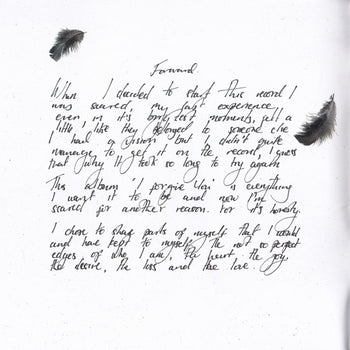 Forward.
When I decided to start this record I
was scared, my last experience,
even in it's brightest moments, felt a
little like they belonged to someone else
I had a vision but I didn't quite
manage to get it on the record, I guess
that why it took so long to try again
This album 'I forgive You' is everything
I want it to be and now I'm
scared for another reason. For it's honesty.
I chose to share parts of myself that I could
and have kept to myself. The not so perfect
edges, of who I am, the hurt, the joy
the desire, the loss and the love.